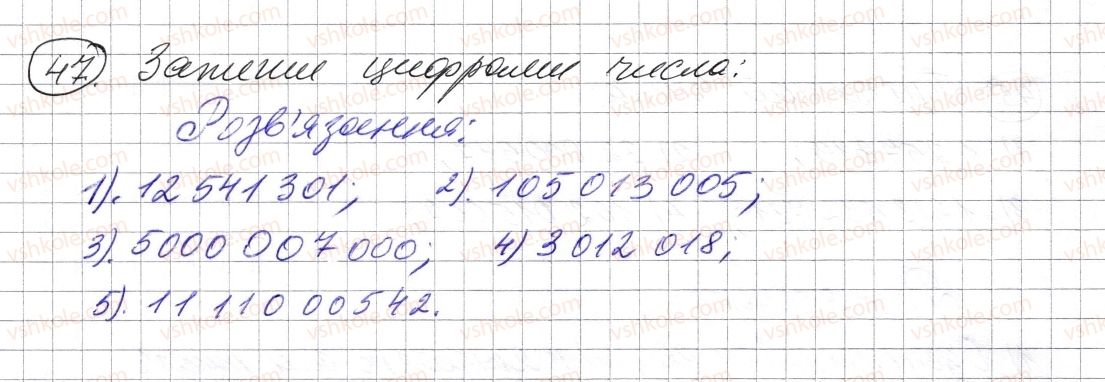 47. Запиши цифрами числа:
Розв'язання:
1). 12 541 301; 2). 105 013 005;
3). 5000 007 000; 4) 3 012 018;
5). 11 110 00542.